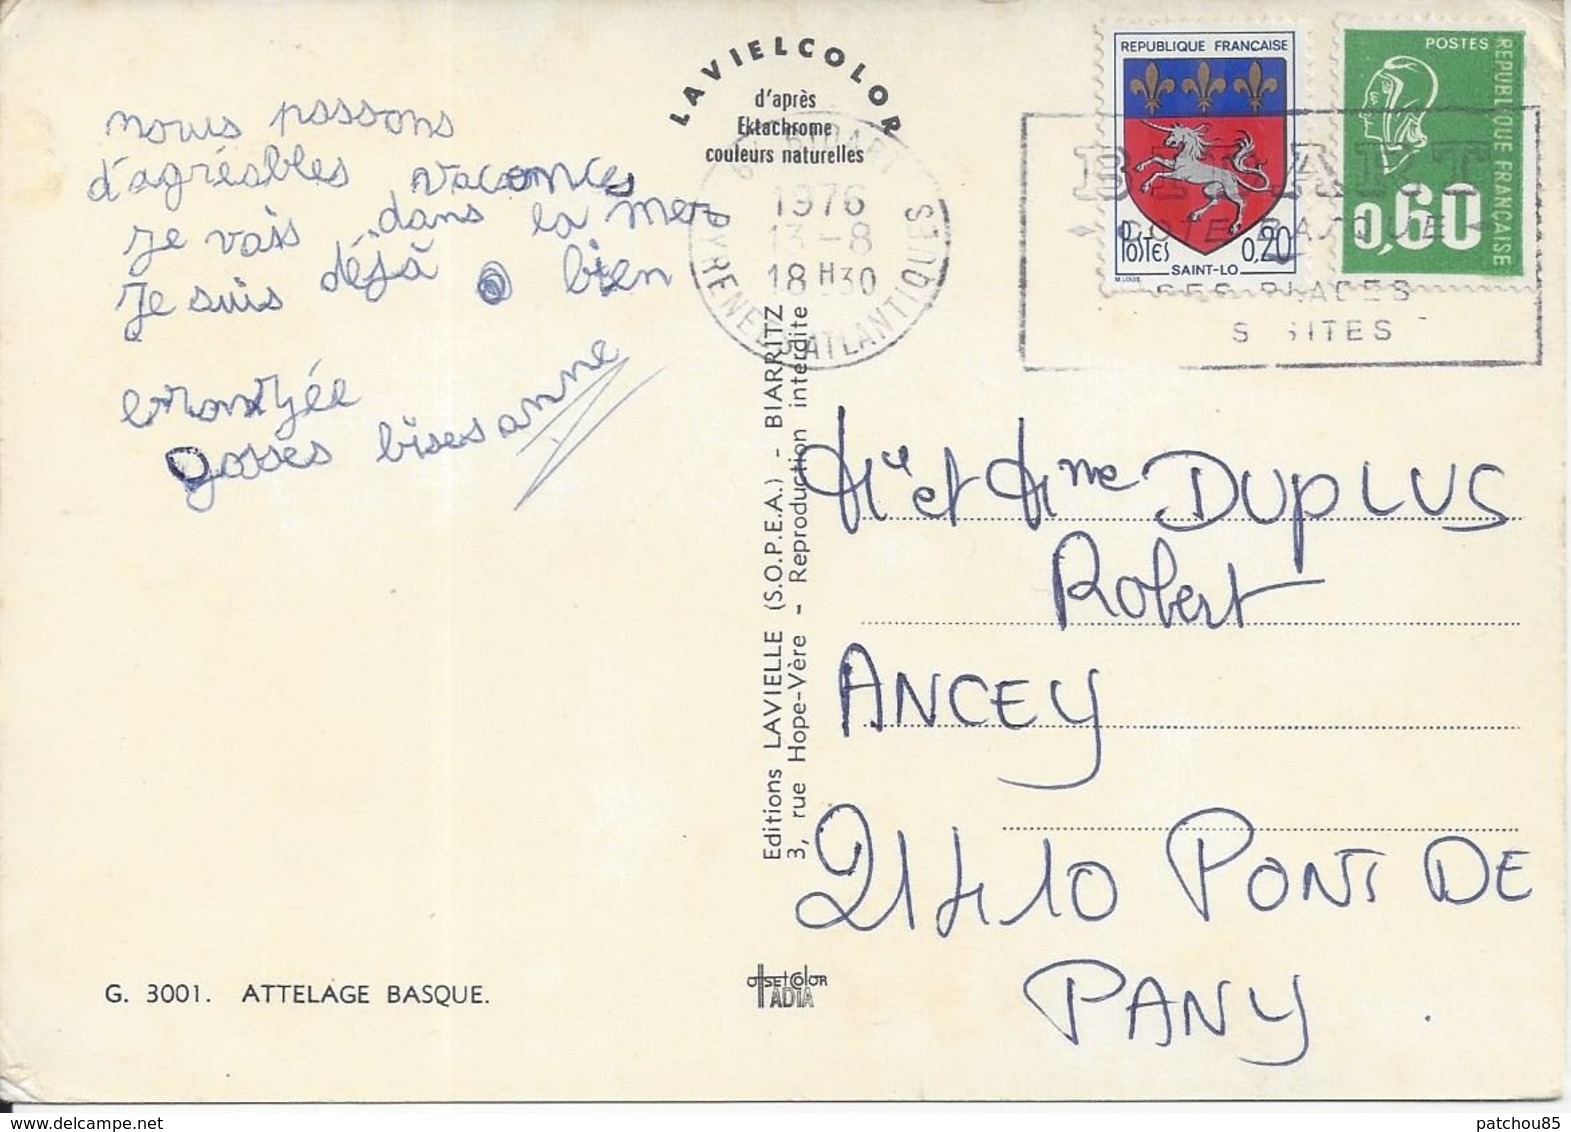 nous passons
d'agréables vacances
je vais dans la mer
je suis déjà bien
gosses bises anne
LAVIELCOLOR
d'après
Ektachrome
couleurs naturelles
1976
13-8
18H30
PYRENEES ATLANTIQUES
REPUBLIQUE FRANÇAISE
POSTES
0,20
SAINT-LO
M. LOUIS
POSTES
REPUBLIQUE FRANÇAISE
0,60
BIDART
COTE BASQUE
SES PLAGES
SES SITES
Editions LAVIELLE (S.O.P.E.A.) - BIARRITZ
3, rue Hope-Vère - Reproduction interdite
et Mme DUPLUS
Robert
ANCEY
21410 PONT DE
PANY.
G. 3001. ATTELAGE BASQUE.
OffSETCOlOR
IADIA
patchou85